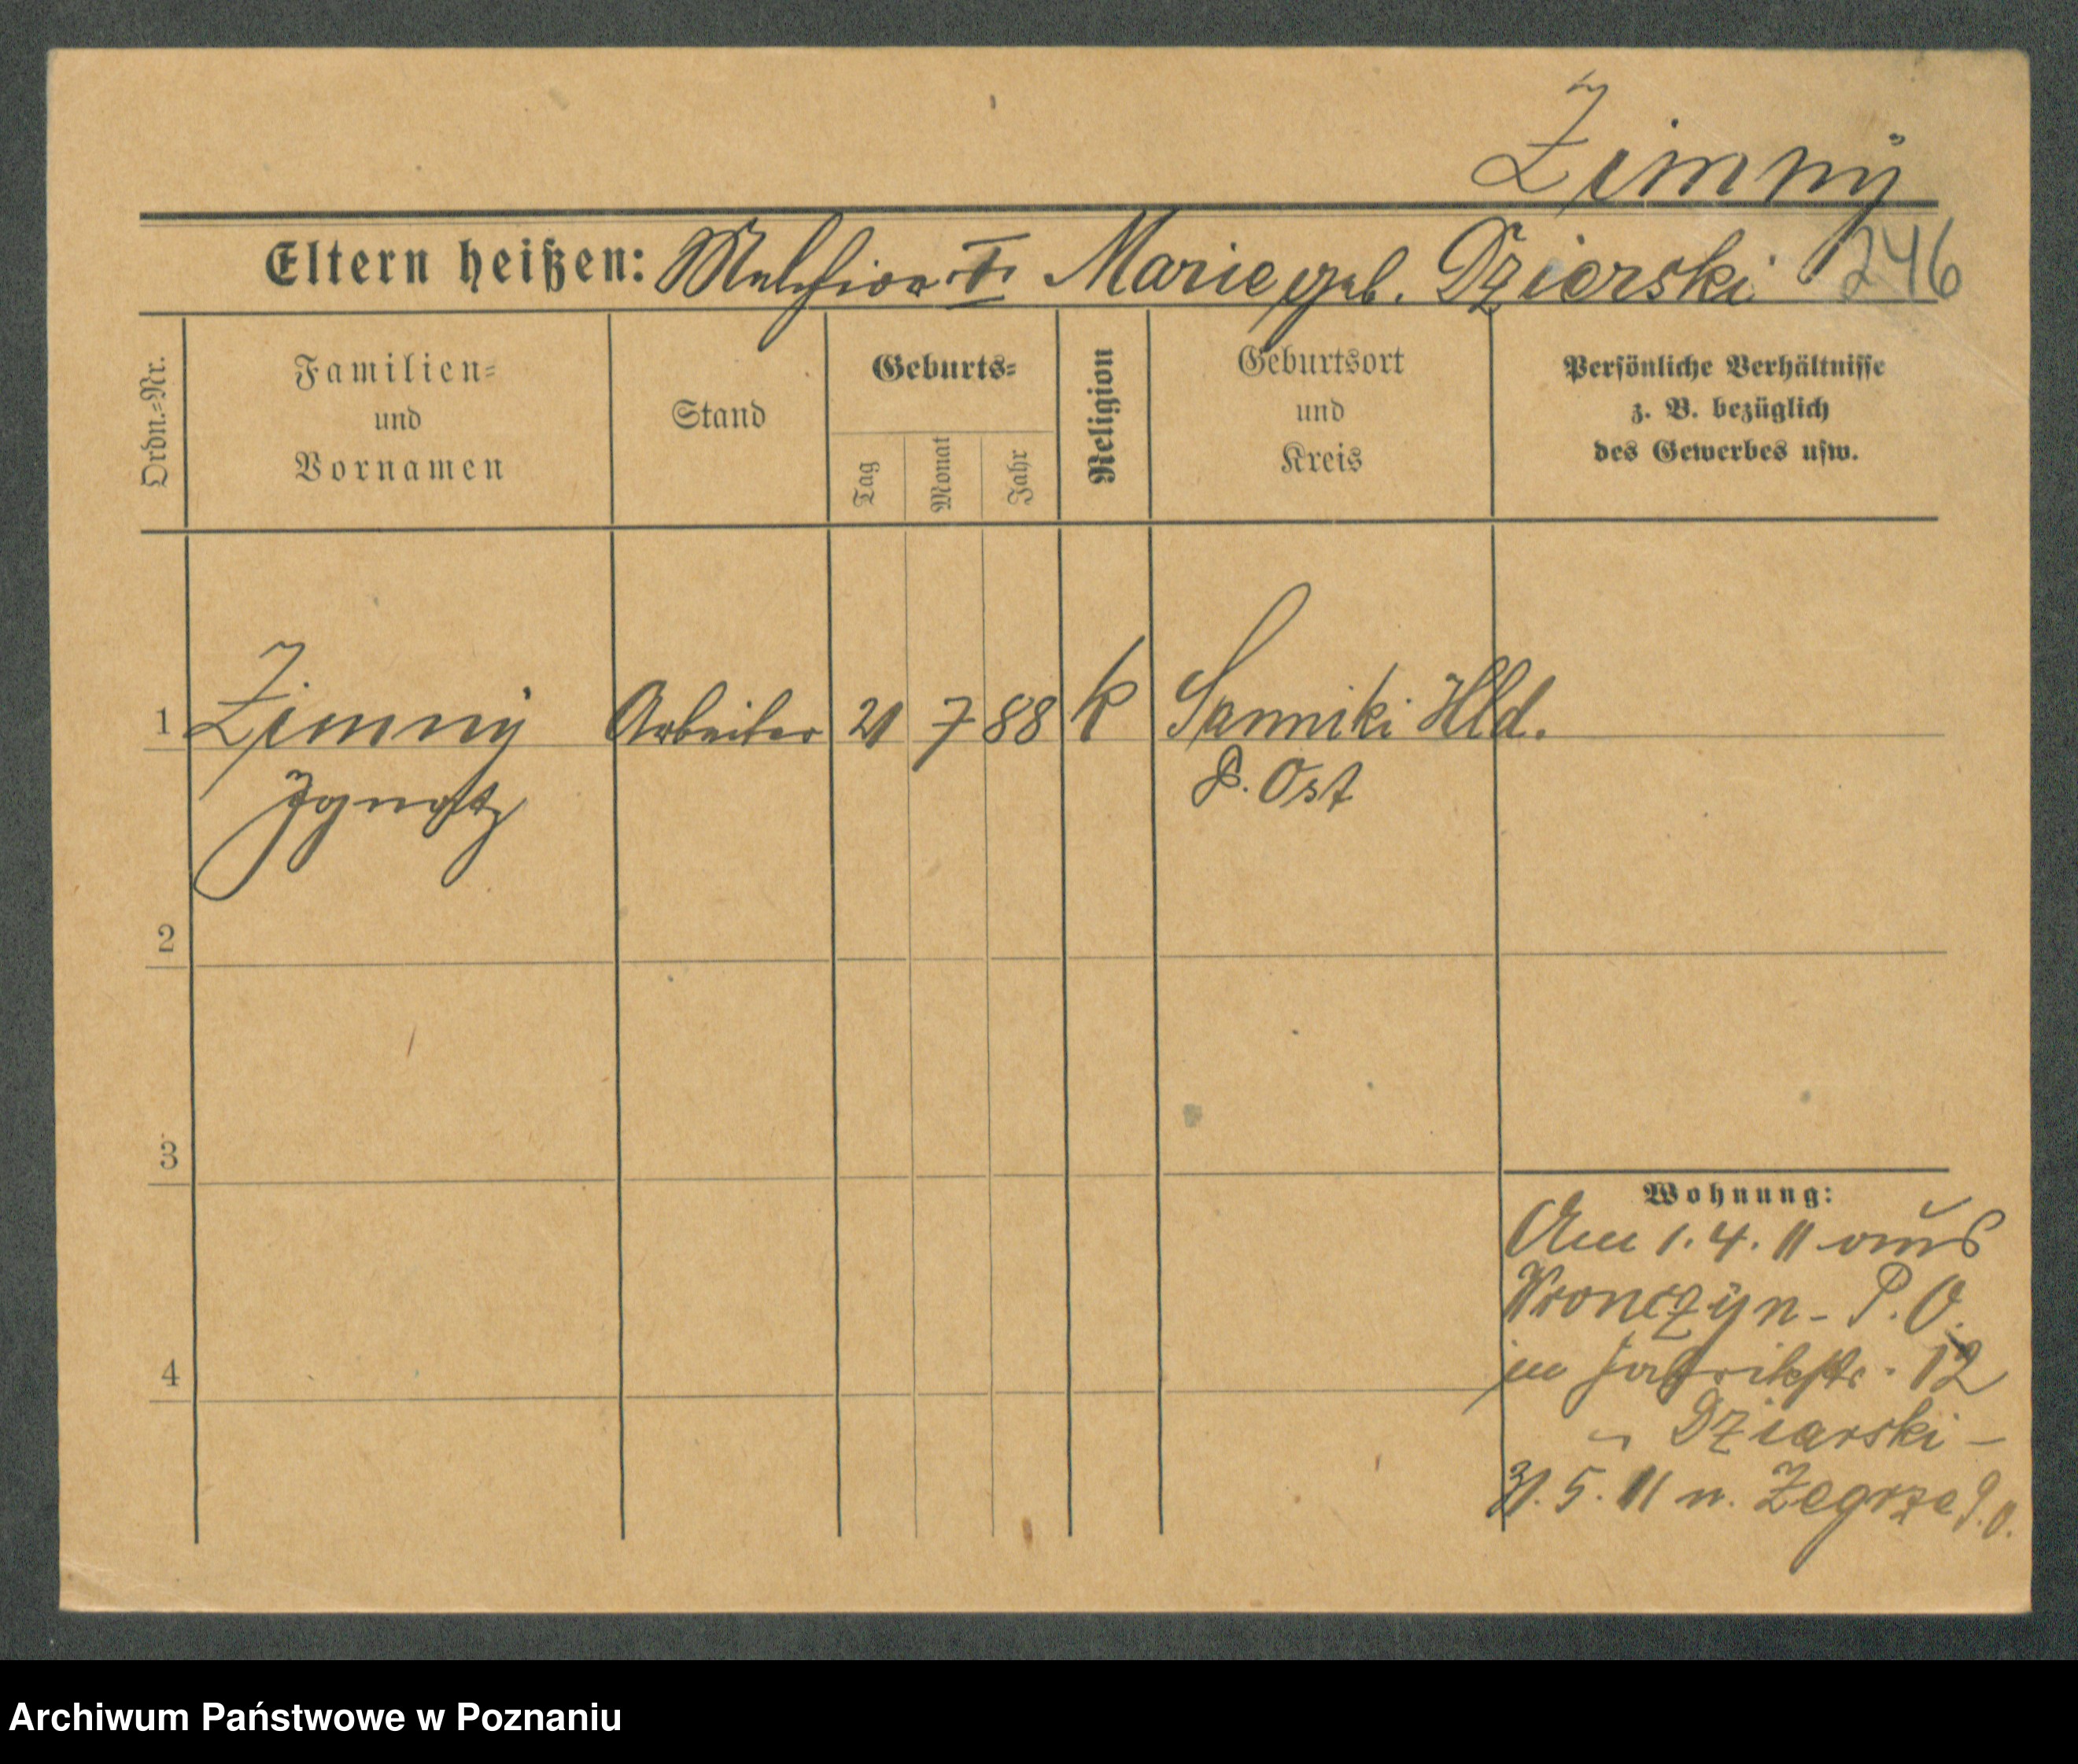 Zimny
Eltern heißen: Melchior u. Marie geb. Dziarski 246
Ordn.=Nr.
Familien=
und
Vornamen
Stand
Geburts=
Tag
Monat
Jahr
Religion
Geburtsort
und
Kreis
Persönliche Verhältnisse
z. B. bezüglich
des Gewerbes usw.
1 Zimny Arbeiter 21 7 88 k Sanniki Hld.
Ignatz P. Ost
2
3
4
Wohnung:
Am 1.4.11 aus
Wronczyn - P. O.
in Fabrikstr. 12
Dziarski -
31.5.11 n. Zegrze P.O.
Archiwum Państwowe w Poznaniu